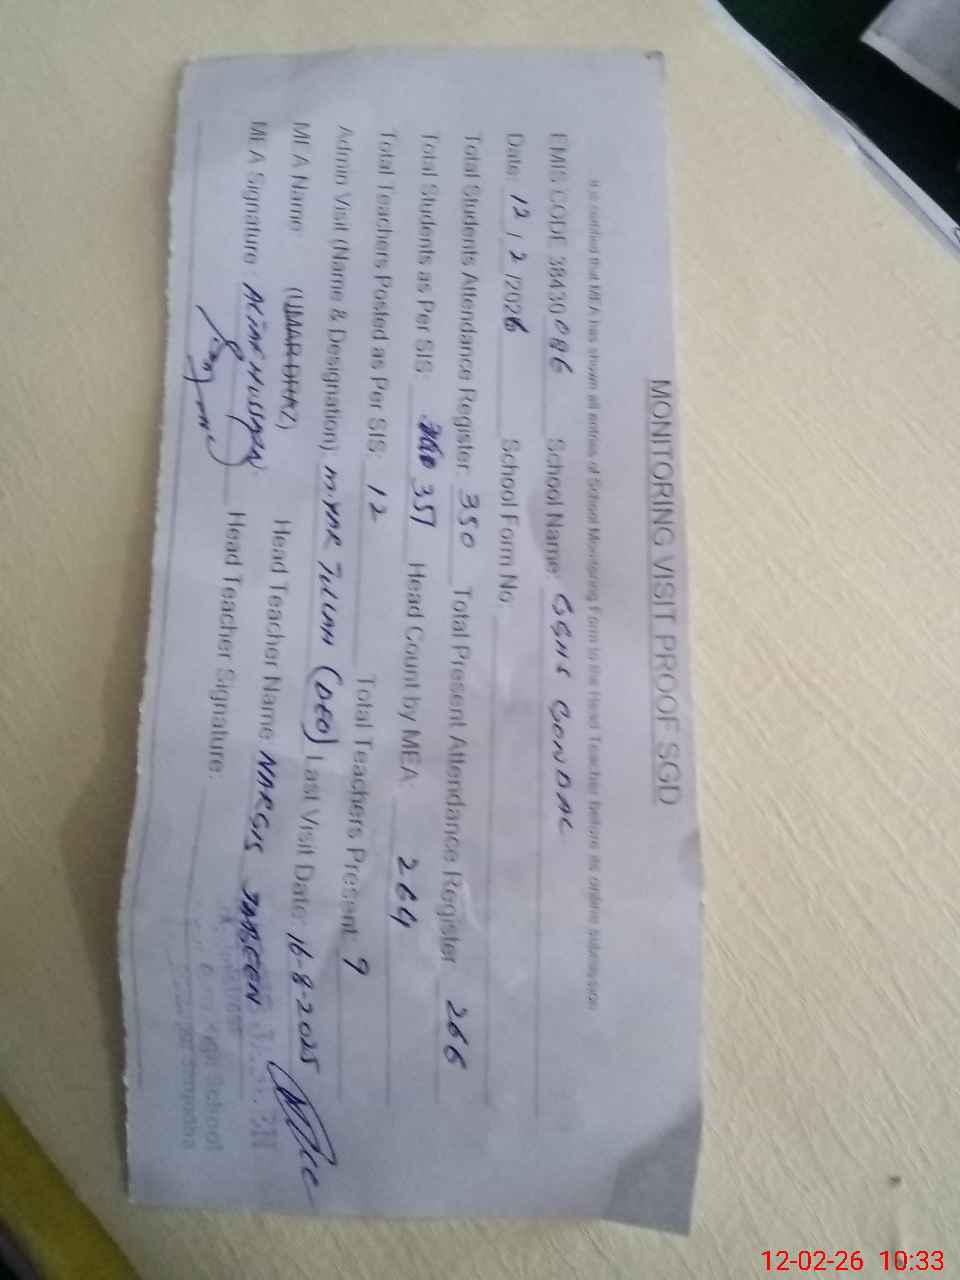 MONITORING VISIT PROOF SGD
It is certified that MEA has shown all entries of School Monitoring Form to the Head Teacher before its online submission
EMIS CODE 38430086 School Name: GGHS GONDAL
Date: 12/2/2026 School Form No:
Total Students Attendance Register: 350 Total Present Attendance Register: 266
Total Students as Per SIS: 351 Head Count by MEA: 264
Total Teachers Posted as Per SIS: 12 Total Teachers Present: 9
Admin Visit (Name & Designation): (DEO) Last Visit Date: 16-8-2025
MEA Name: (UMAR DRAZ) Head Teacher Name NARGIS
MEA Signature: Head Teacher Signature:
High School
12-02-26 10:33